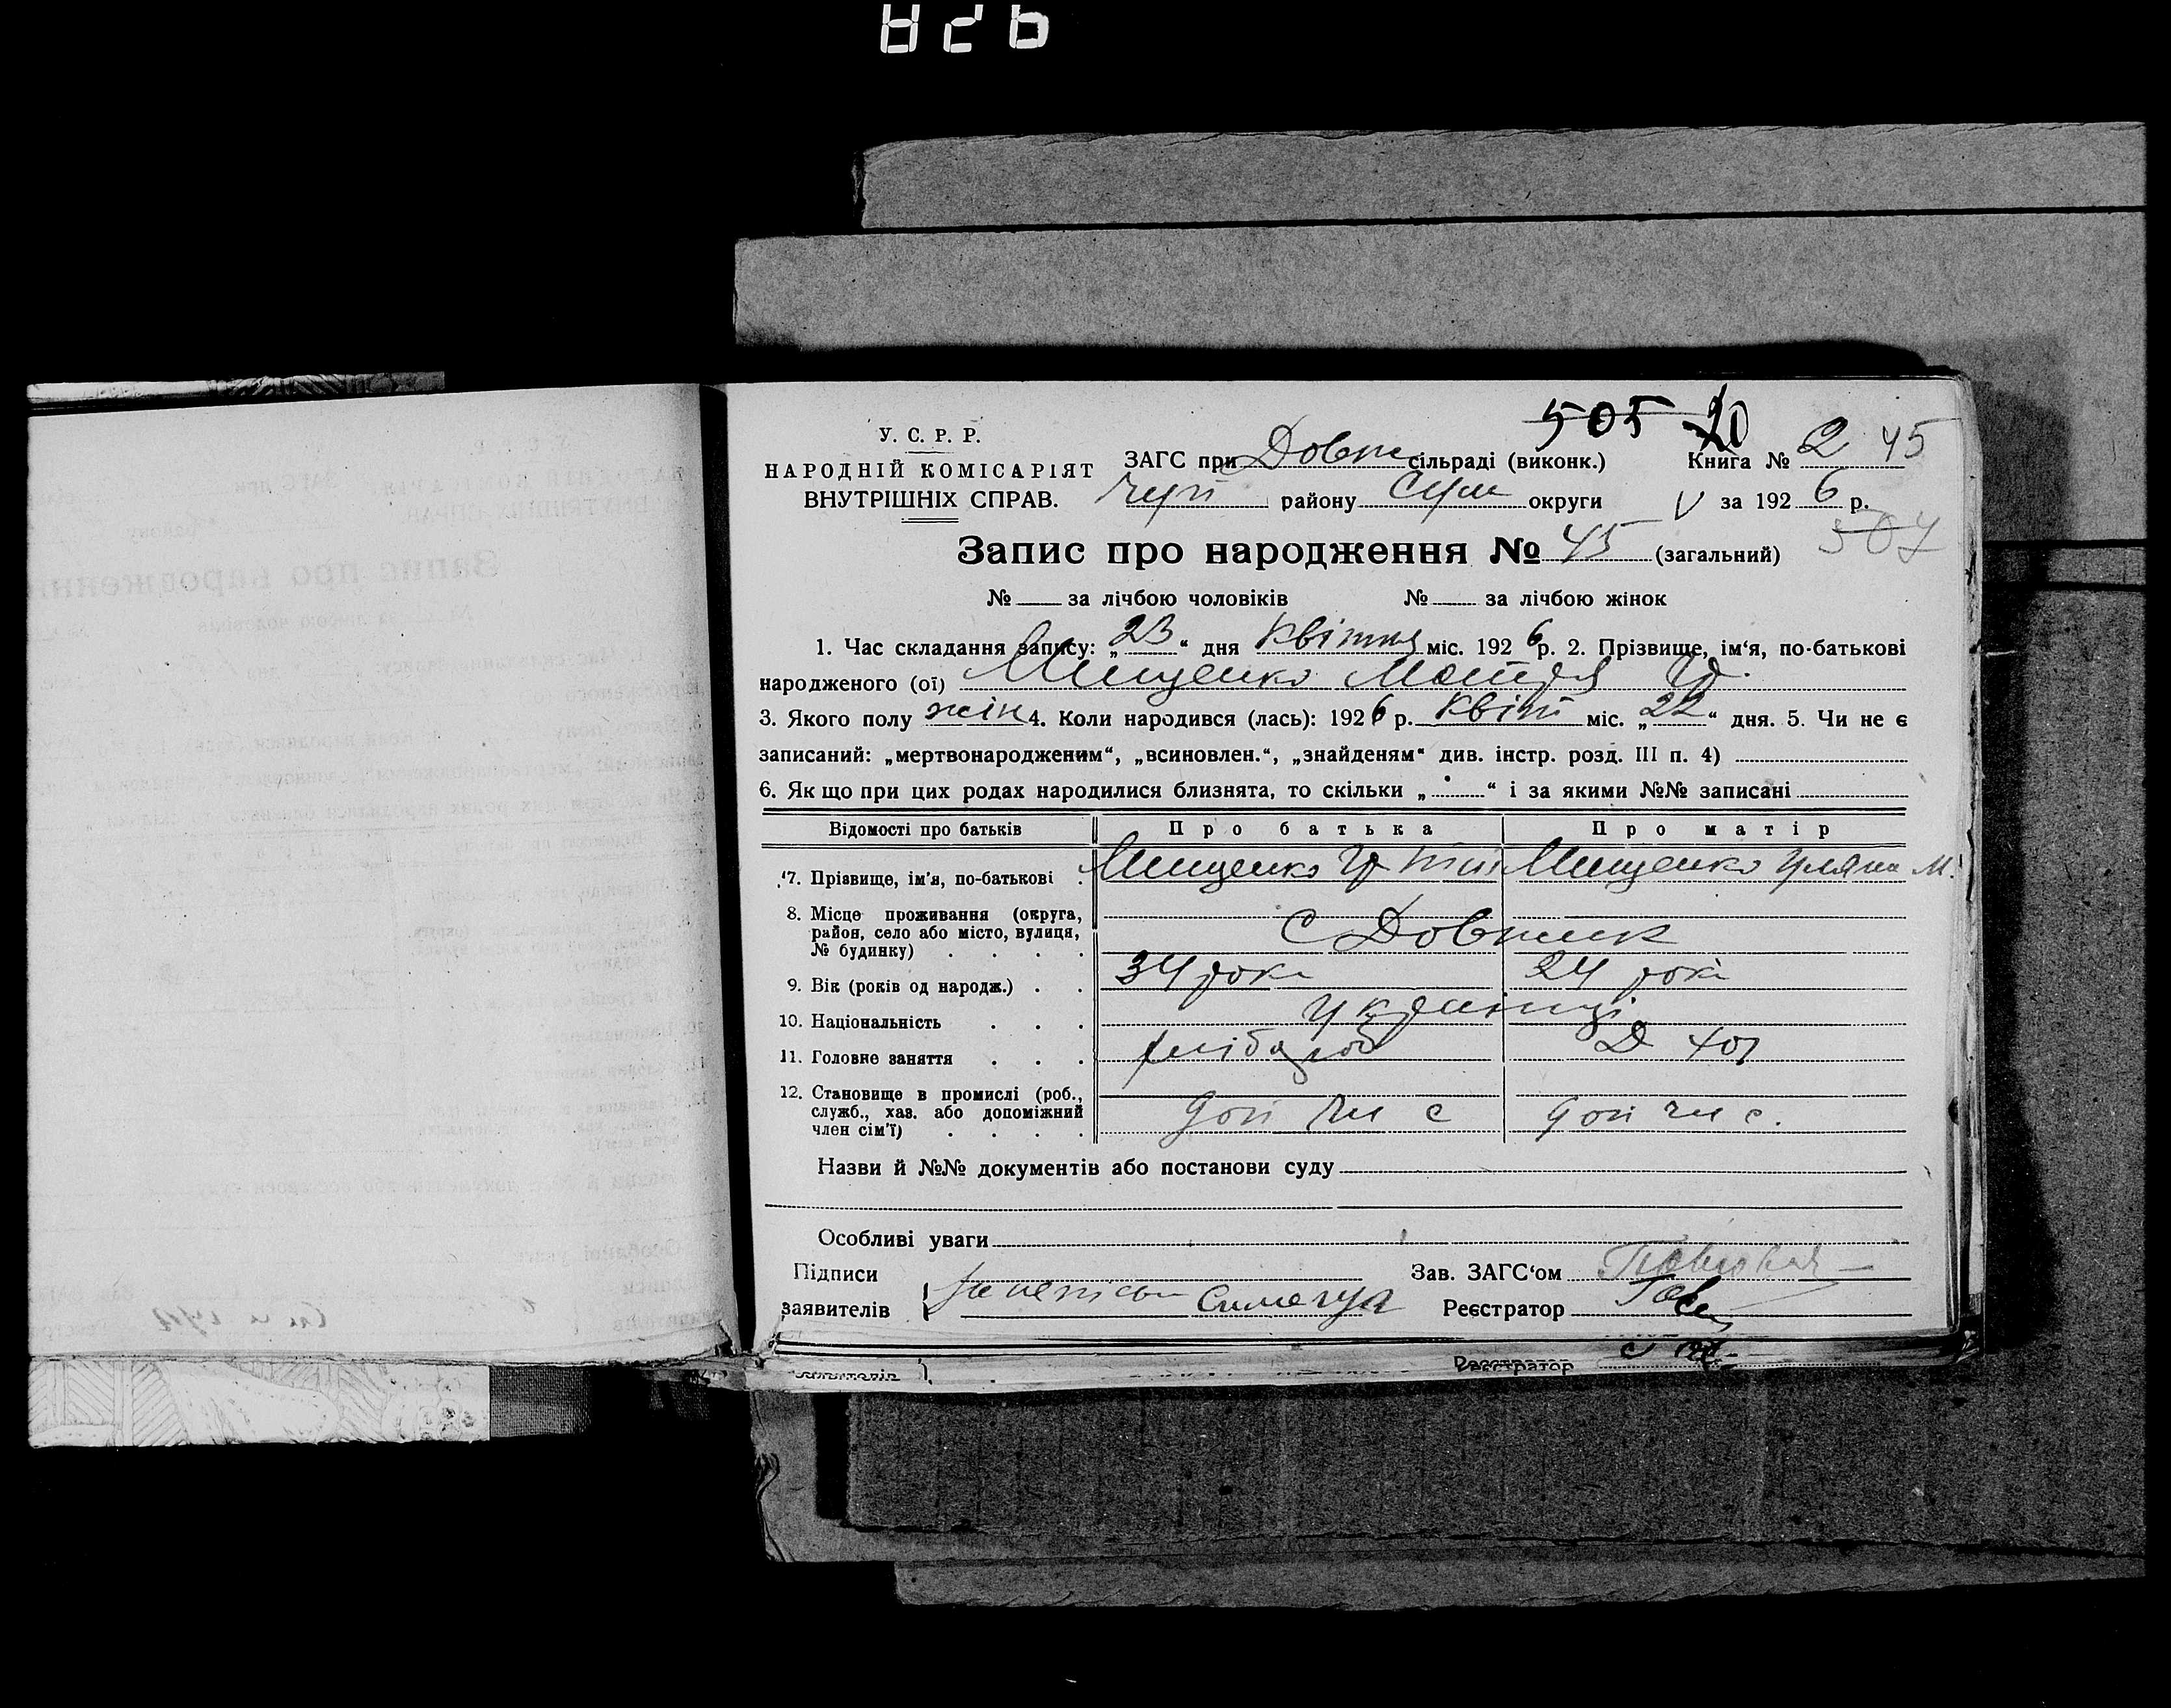 826
505 20
У. С. Р. Р.
НАРОДНІЙ КОМІСАРІЯТ
ВНУТРІШНІХ СПРАВ.
ЗАГС при Довж сільраді (виконк.) Книга № 2 45
району Сум округи V за 1926 р.
507
Запис про народження № 45 (загальний)
№ за лічбою чоловіків № за лічбою жінок
1. Час складання запису: „23“ дня Квітня міс. 1926 р. 2. Прізвище, ім‘я, по-батькові
народженого (ої) Мищенко Мотря Гр.
3. Якого полу жін 4. Коли народився (лась): 1926 р. Квіт міс. „22“ дня. 5. Чи не є
записаний: „мертвонародженим“, „всиновлен.“, „знайденям“ див. інстр. розд. III п. 4)
6. Як що при цих родах народилися близнята, то скільки „ “ і за якими №№ записані
Відомості про батьків Про батька Про матір
7. Прізвище, ім‘я, по-батькові . Мищенко Гр Мищенко Уляна М.
8. Місце проживання (округа,
район, село або місто, вулиця,
№ будинку) . . . . С Довжик
9. Вік (років од народж.) . . 34 роки 24 роки
10. Національність . . . Українці
11. Головне заняття . . . хлібороб
12. Становище в промислі (роб.,
служб., хаз. або допоміжний
член сім‘ї) . . . . доп чл с доп чл с.
Назви й №№ документів або постанови суду
Особливі уваги
Підписи Зав. ЗАГС‘ом
заявителів Реєстратор
Реєстратор